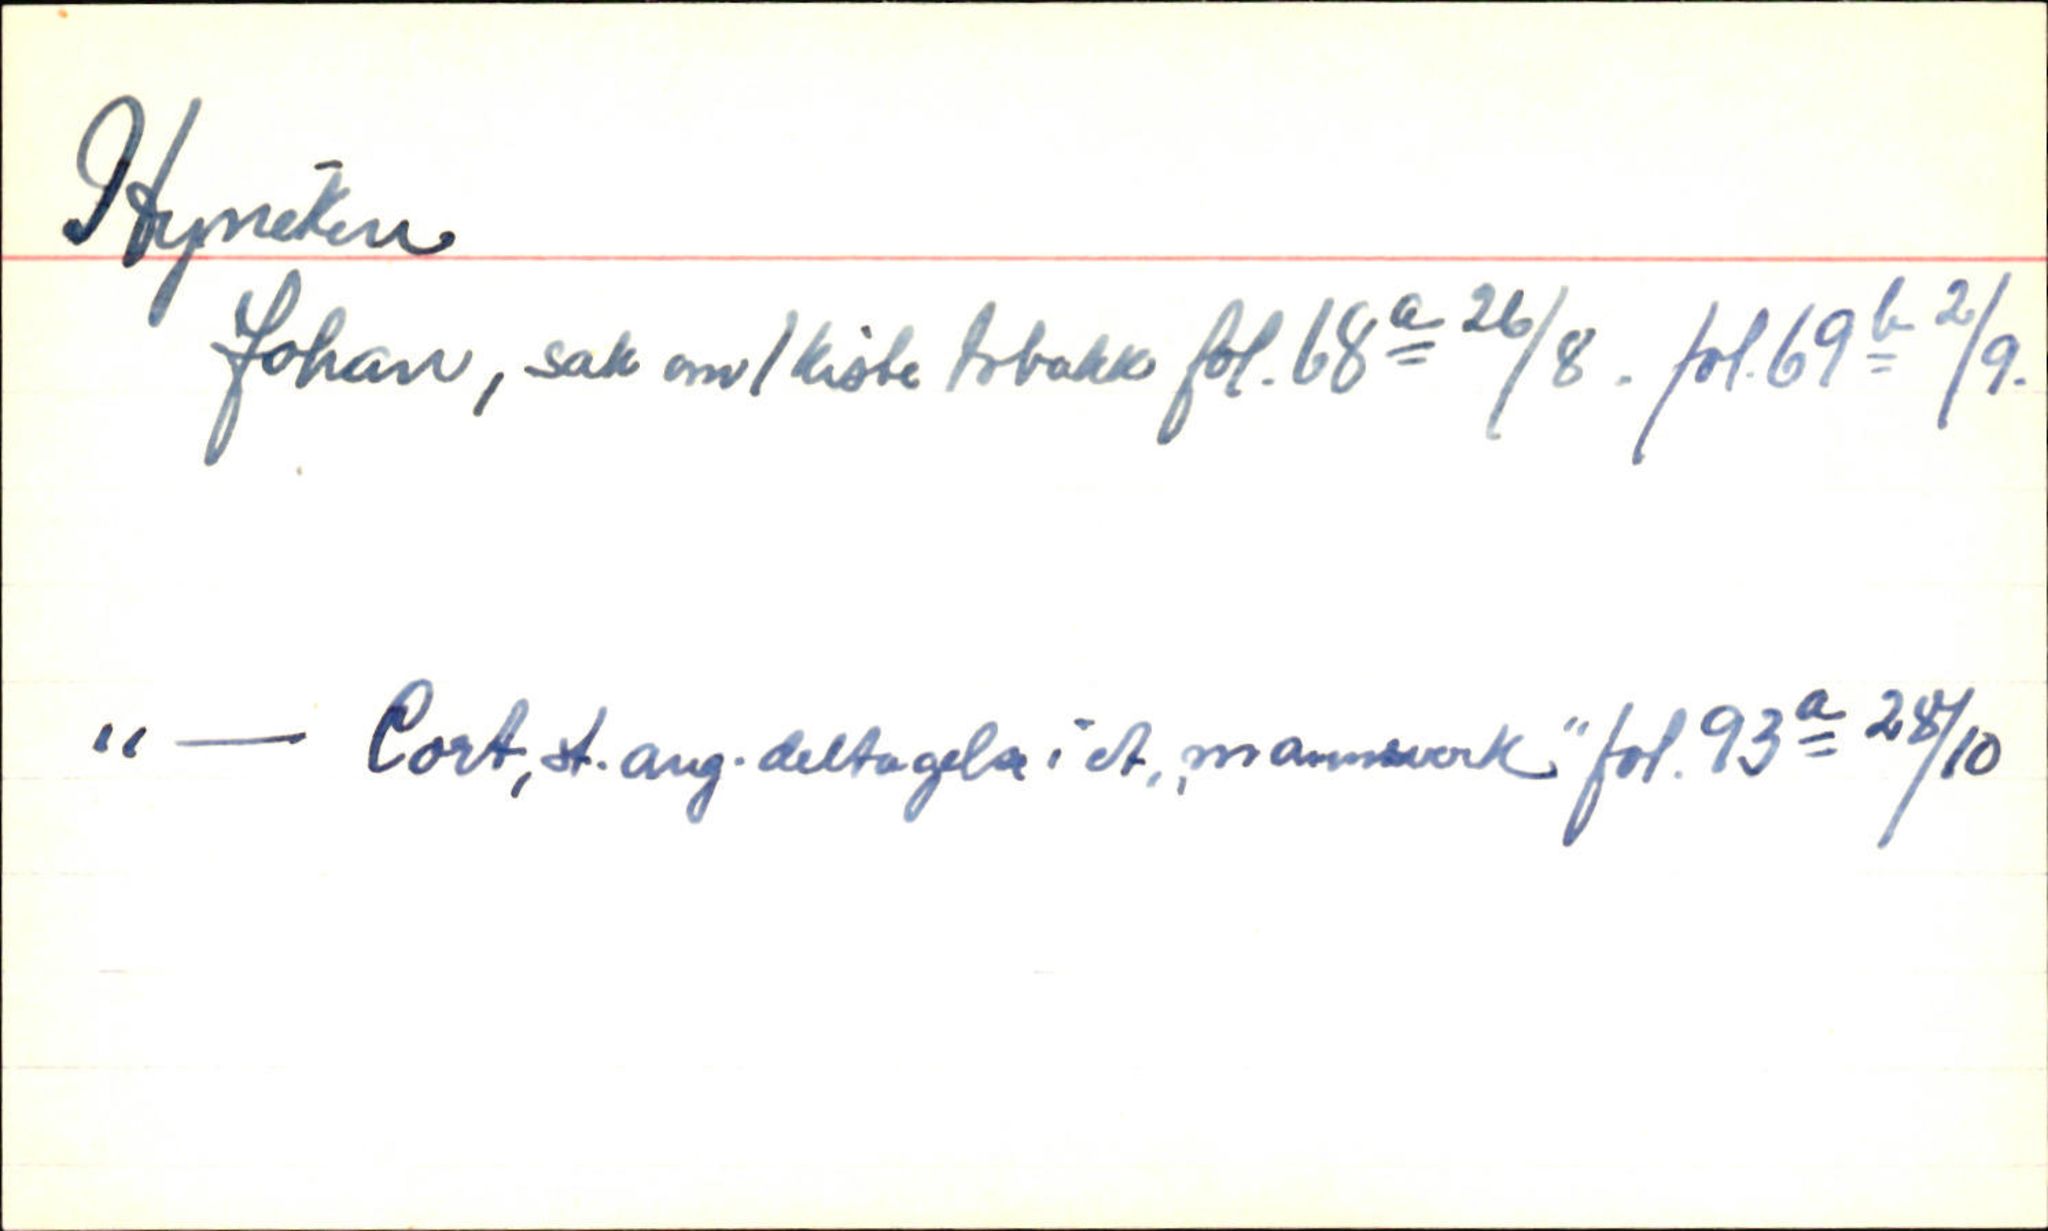 Hyneken
Johan, sak om 1 kiste tobakk fol. 68a 26/8. fol. 69b 2/9.
"— Cort, st. ang. deltagelse i et „mannswerk" fol. 93a 28/10